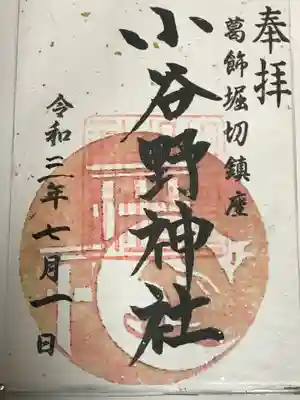 奉拝
葛飾堀切鎮座
小谷野神社
令和三年七月一日